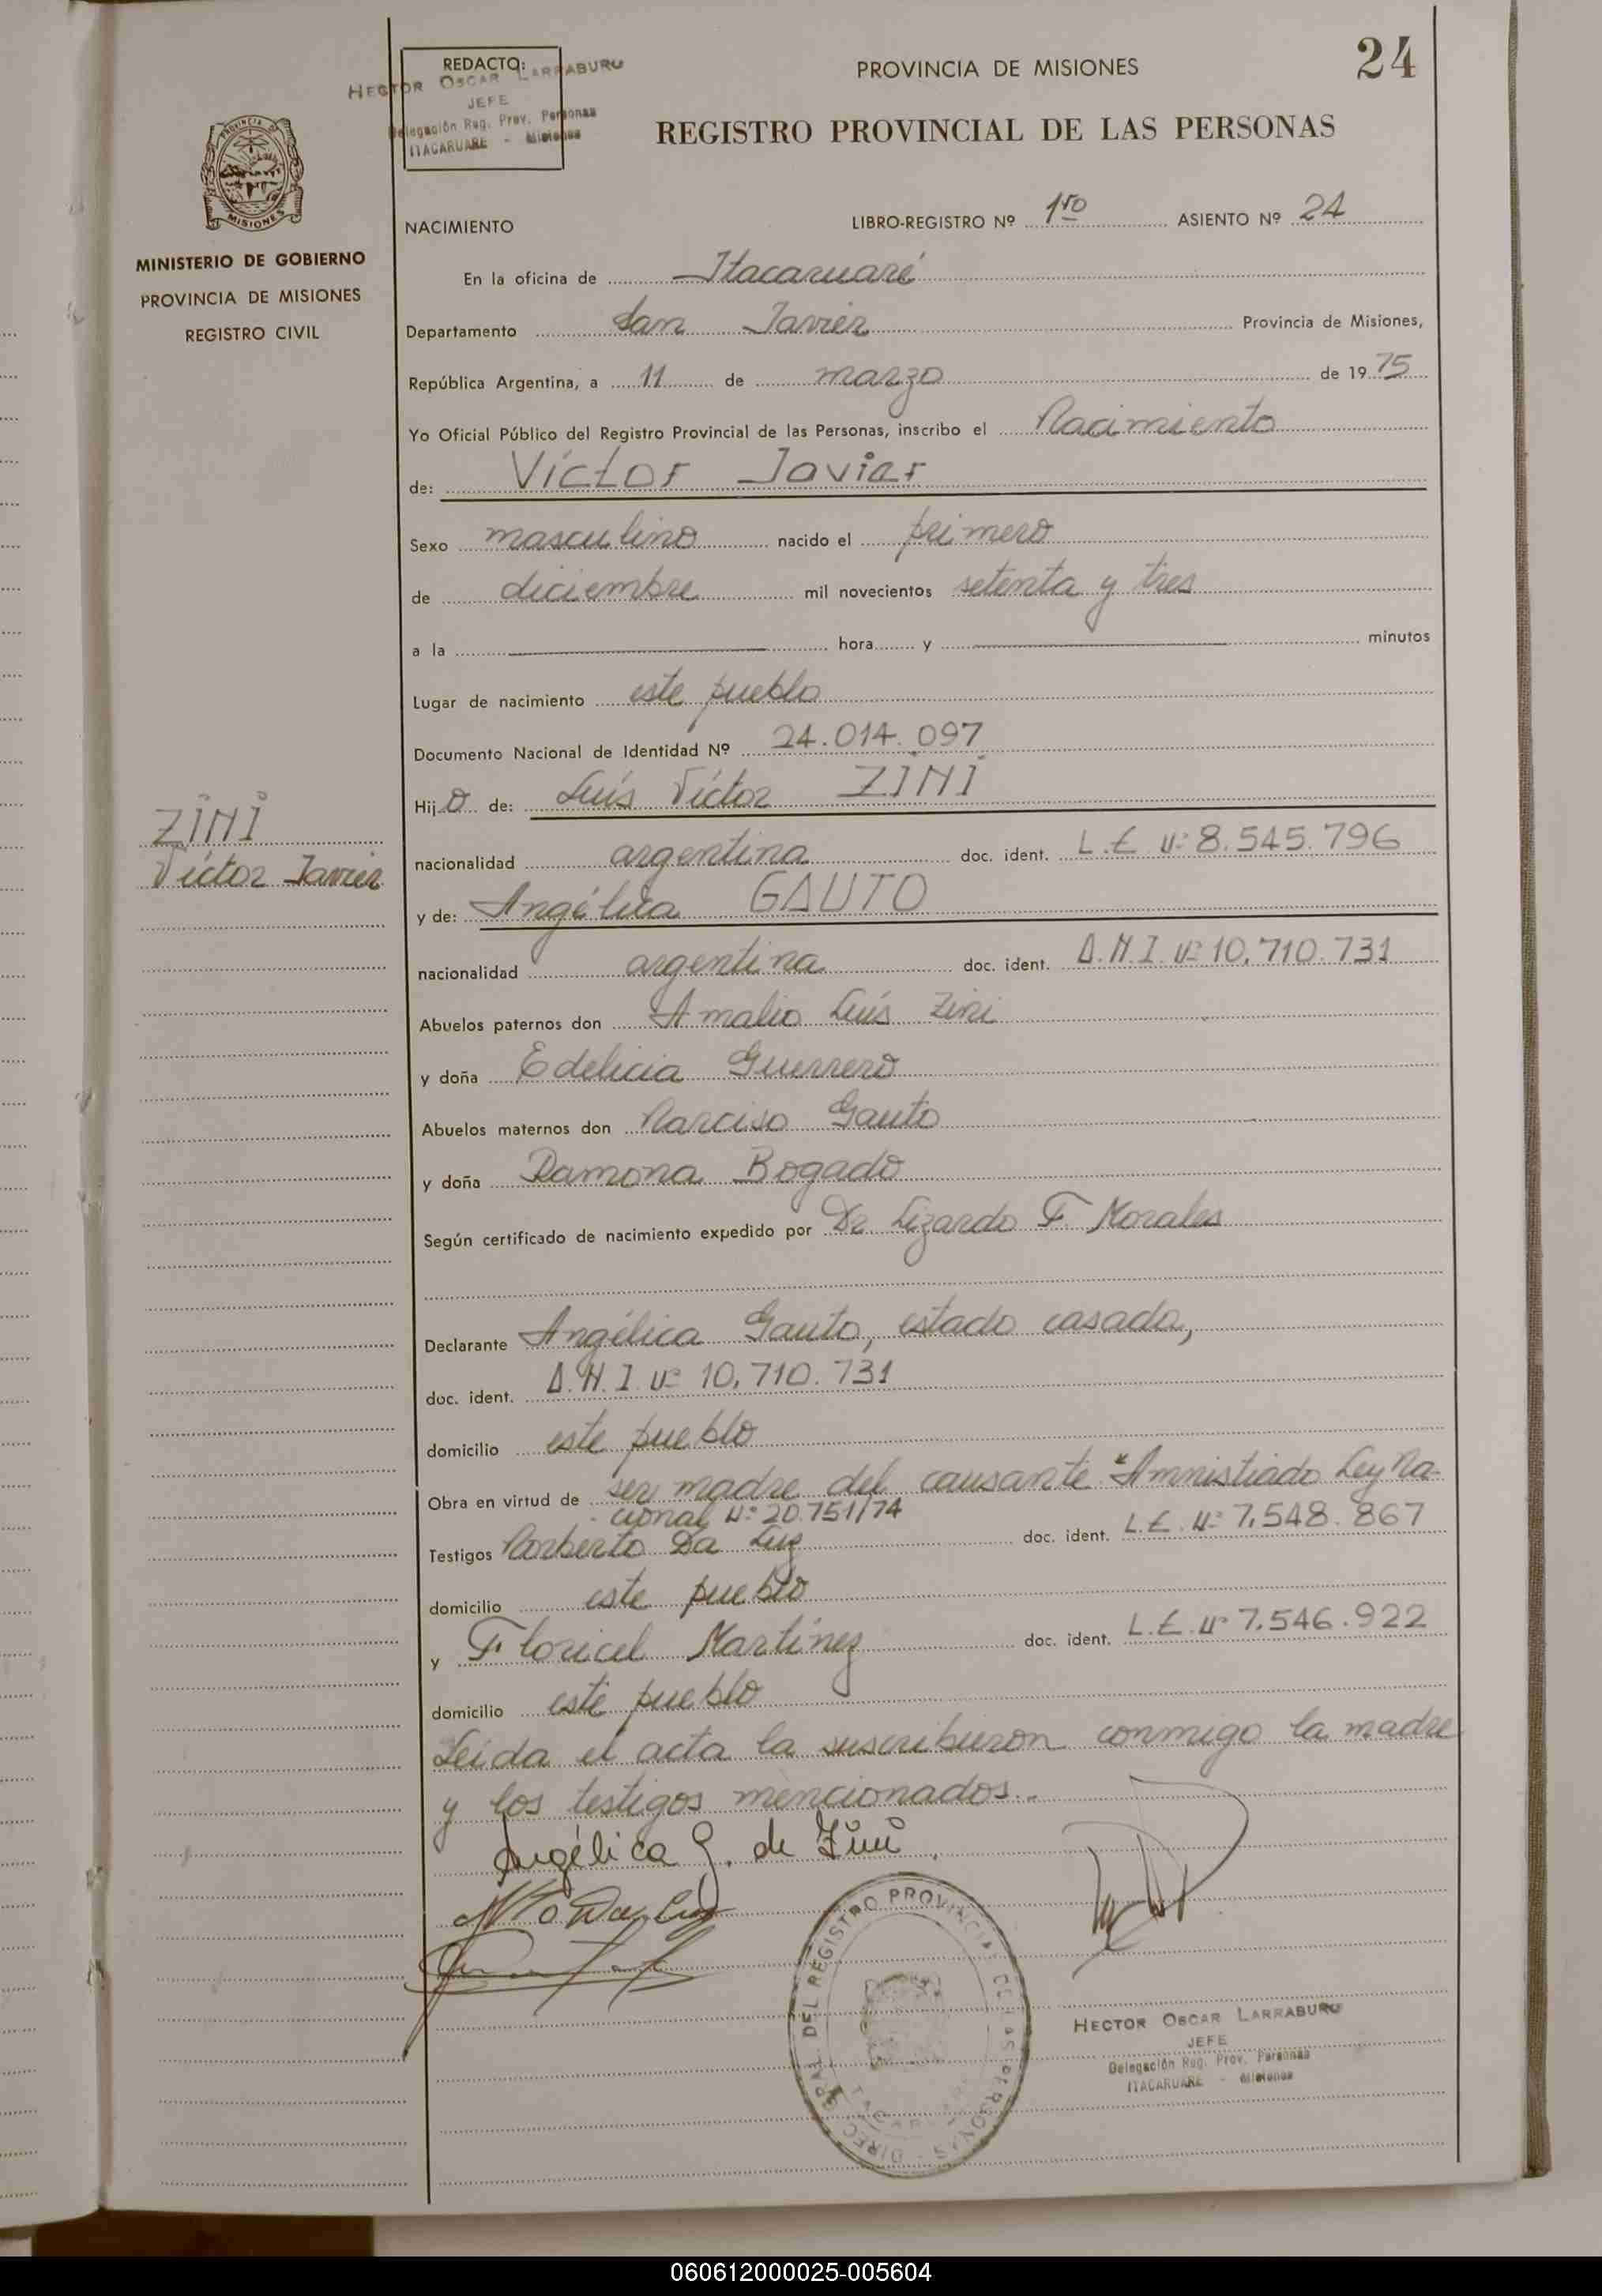 24
REDACTO:
HECTOR OSCAR LARRABURU
JEFE
Delegación Reg. Prov. Personas
ITACARUARE - Misiones
PROVINCIA DE MISIONES
REGISTRO PROVINCIAL DE LAS PERSONAS
PROVINCIA DE
MISIONES
MINISTERIO DE GOBIERNO
PROVINCIA DE MISIONES
REGISTRO CIVIL
NACIMIENTO LIBRO-REGISTRO Nº 1ro ASIENTO Nº 24
En la oficina de Itacaruaré
Departamento San Javier Provincia de Misiones,
República Argentina, a 11 de marzo de 1975
Yo Oficial Público del Registro Provincial de las Personas, inscribo el Nacimiento
de: Víctor Javier
Sexo masculino nacido el primero
de diciembre mil novecientos setenta y tres
a la hora y minutos
Lugar de nacimiento este pueblo
Documento Nacional de Identidad Nº 24.014.097
Hijo de: Luís Víctor ZINI
ZINI
Víctor Javier
nacionalidad argentina doc. ident. L.E. Nº 8.545.796
y de: Angélica GAUTO
nacionalidad argentina doc. ident. D.N.I. Nº 10.710.731
Abuelos paternos don Amalio Luís Zini
y doña Edelicia Guerrero
Abuelos maternos don Narciso Gauto
y doña Ramona Bogado
Según certificado de nacimiento expedido por Dr Lizardo F. Morales
Declarante Angélica Gauto, estado casada,
doc. ident. D.N.I. Nº 10.710.731
domicilio este pueblo
Obra en virtud de ser madre del causante "Amnistiado Ley Na-
cional Nº 20.751/74
Testigos Norberto Da Luz doc. ident. L.E. Nº 7.548.867
domicilio este pueblo
y Floricel Martínez doc. ident. L.E. Nº 7.546.922
domicilio este pueblo
Leída el acta la suscribieron conmigo la madre
y los testigos mencionados..
Angélica G. de Zini
DIREC. GRAL. DEL REGISTRO PROVINCIAL DE LAS PERSONAS
HECTOR OSCAR LARRABURU
JEFE
Delegación Reg. Prov. Personas
ITACARUARE - Misiones
060612000025-005604